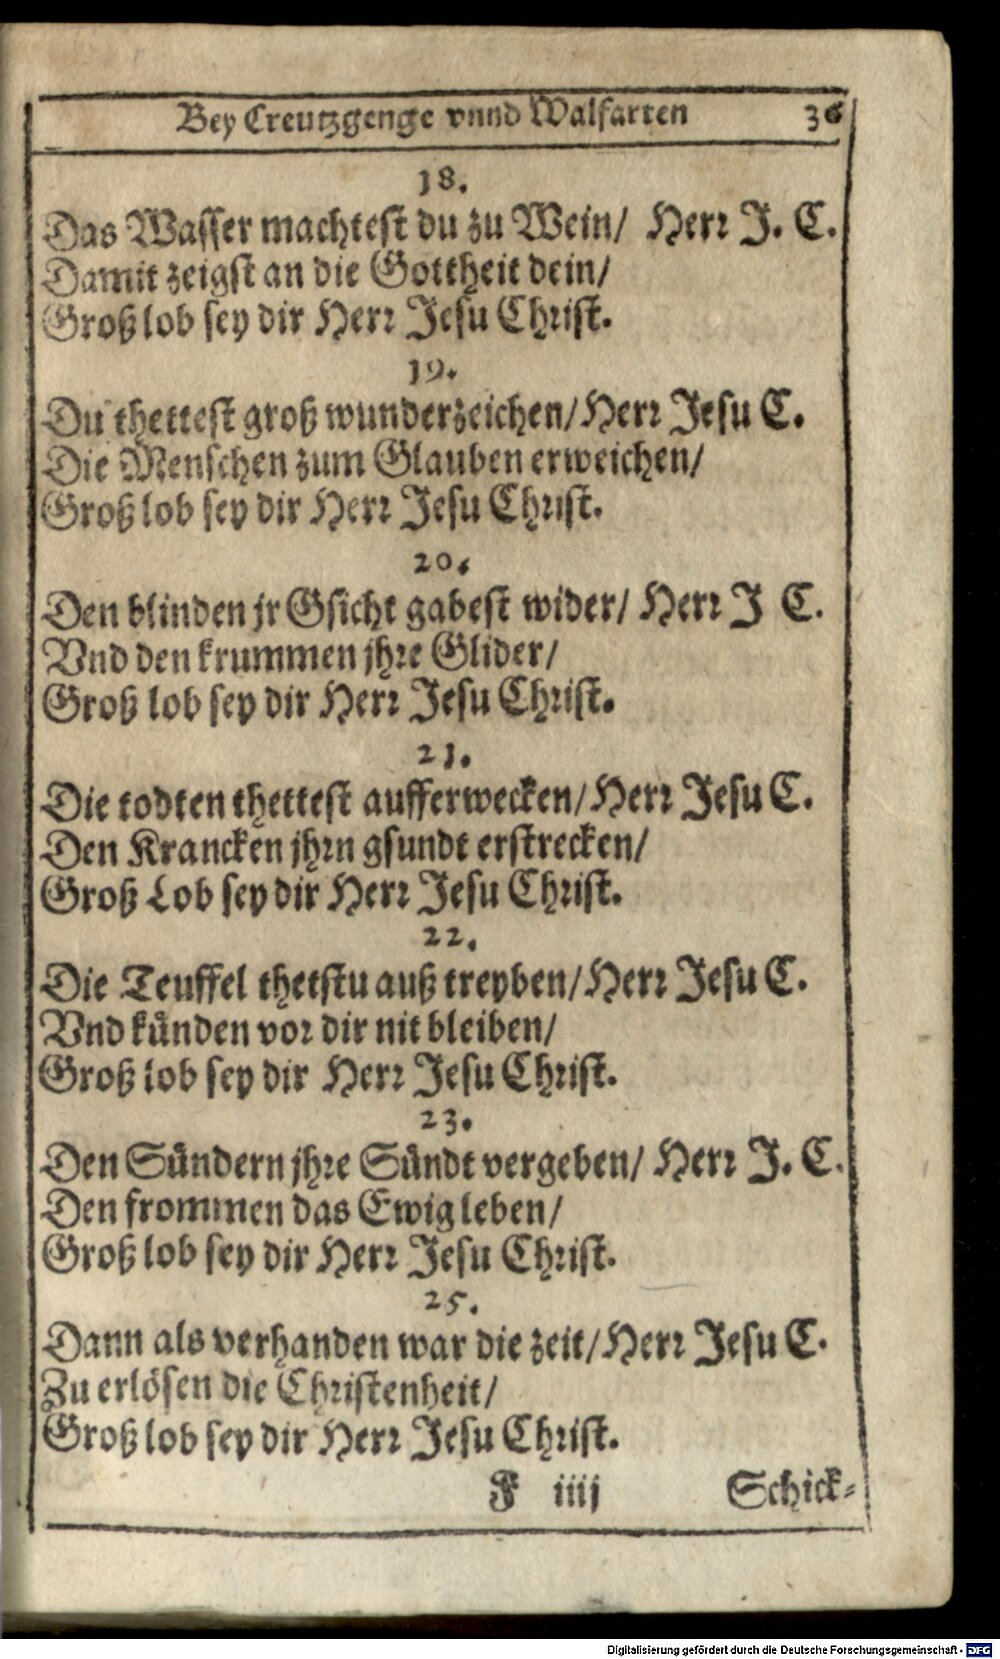 Bey Creutzgenge vnnd Walfarten 36
18.
Das Wasser machtest du zu Wein/ Herr J. C.
Damit zeigst an die Gottheit dein/
Groß lob sey dir Herr Jesu Christ.
19.
Du thettest groß wunderzeichen/ Herr Jesu C.
Die Menschen zum Glauben erweichen/
Groß lob sey dir Herr Jesu Christ.
20.
Den blinden jr Gsicht gabest wider/ Herr J C.
Vnd den krummen jhre Glider/
Groß lob sey dir Herr Jesu Christ.
21.
Die todten thettest aufferwecken/ Herr Jesu C.
Den Krancken jhrn gsundt erstrecken/
Groß Lob sey dir Herr Jesu Christ.
22.
Die Teuffel thetstu auß treyben/ Herr Jesu C.
Vnd kuͤnden vor dir nit bleiben/
Groß lob sey dir Herr Jesu Christ.
23.
Den Suͤndern jhre Suͤndt vergeben/ Herr J. C.
Den frommen das Ewig leben/
Groß lob sey dir Herr Jesu Christ.
25.
Dann als verhanden war die zeit/ Herr Jesu C.
Zu erlösen die Christenheit/
Groß lob sey dir Herr Jesu Christ.
F iiij Schick-
Digitalisierung gefördert durch die Deutsche Forschungsgemeinschaft - DFG